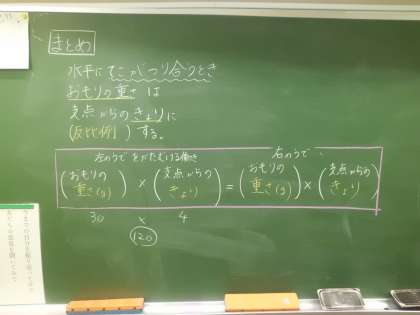 まとめ
水平にてこがつり合うとき
おもりの重さは
支点からのきょりに
(反比例)する。
左のうでをかたむける働き
右のうで
(おもりの重さ(g)) × (支点からのきょり) = (おもりの重さ(g)) × (支点からのきょり)
30 × 4
120